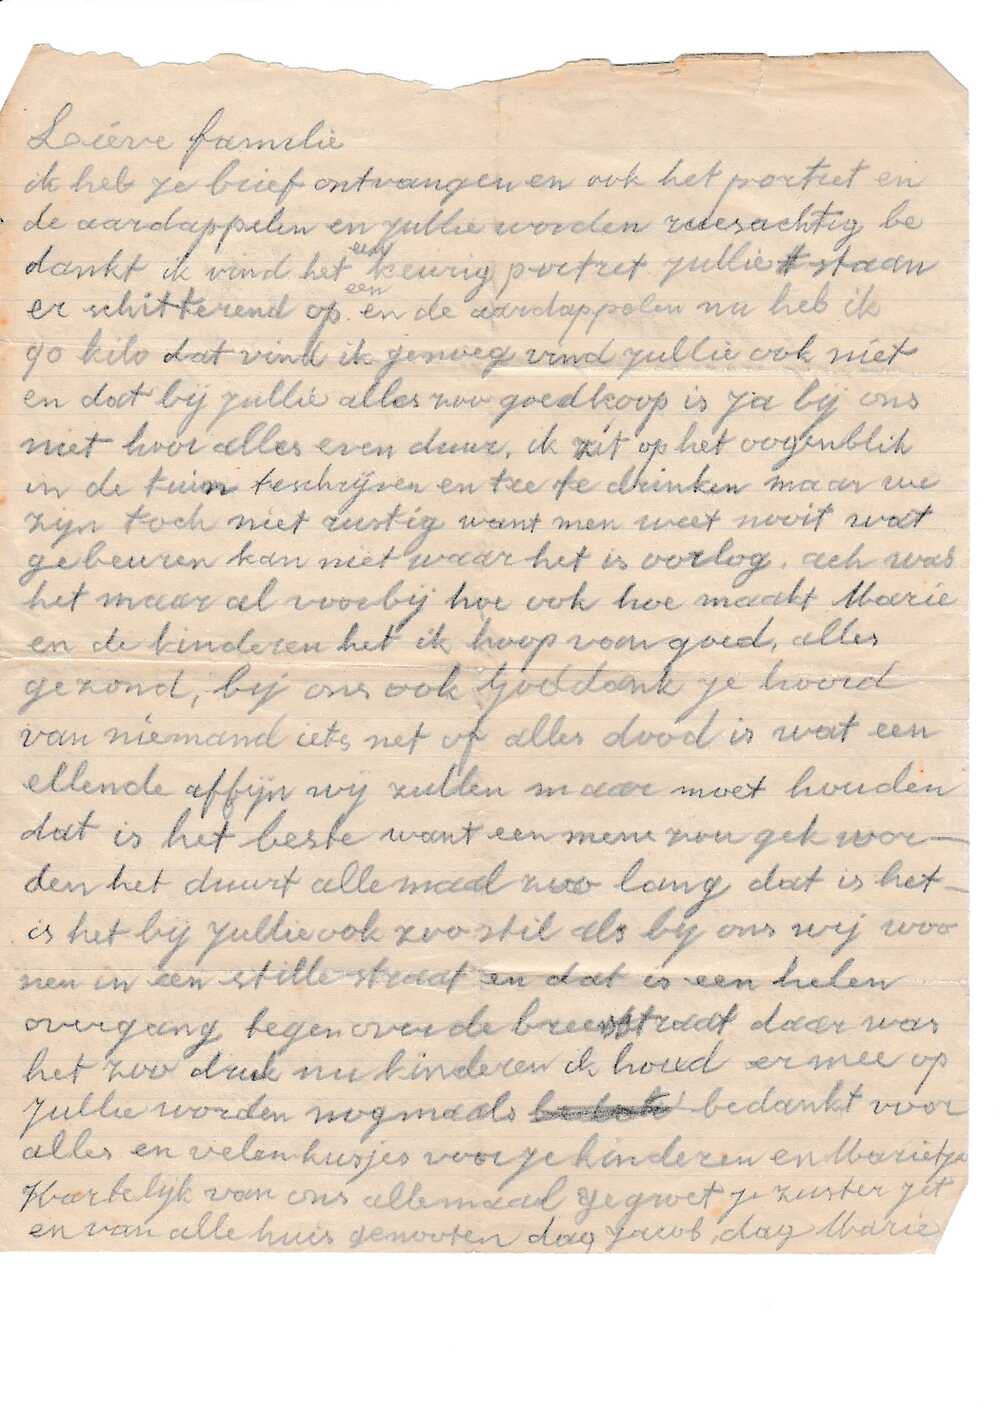 Liéve familie
ik heb je brief ontvangen en ook het portret en
de aardappelen en jullie worden ruesachtig be
dankt ik vind het een keurig portret jullie staan
er schitterend op en en de aardappelen nu heb ik
90 kilo dat vind ik genoeg vind jullie ook niet
en dat bij jullie alles zoo goedkoop is ja bij ons
niet hoor alles even duur, ik zit op het oogenblik
in de tuin teschrijven en tee te drinken maar we
zijn toch niet rustig want men weet nooit wat
gebeuren kan niet waar het is oorlog. ach was
het maar al voorbij hoe ook hoe maakt Marie
en de kinderen het ik hoop van goed, alles
gezond, bij ons ook Goddank je hoord
van niemand iets net of alles dood is wat een
ellende affijn wij zullen maar moet houden
dat is het beste want een mens zou gek wor—
den het duurt allemaal zoo lang dat is het—
is het bij jullie ook zoo stil als by ons wij woo
nen in een stille straat en dat is een helen
overgang tegenover de breestraat daar was
het zoo druk nu kinderen ik houd er mee op
jullie worden nogmaals bedankt voor
alles en velen kusjes voor je kinderen en Marietje
Hartelijk van ons allemaal gegroet je zuster Jet
en van alle huis genooten dag Jacob, dag Marie